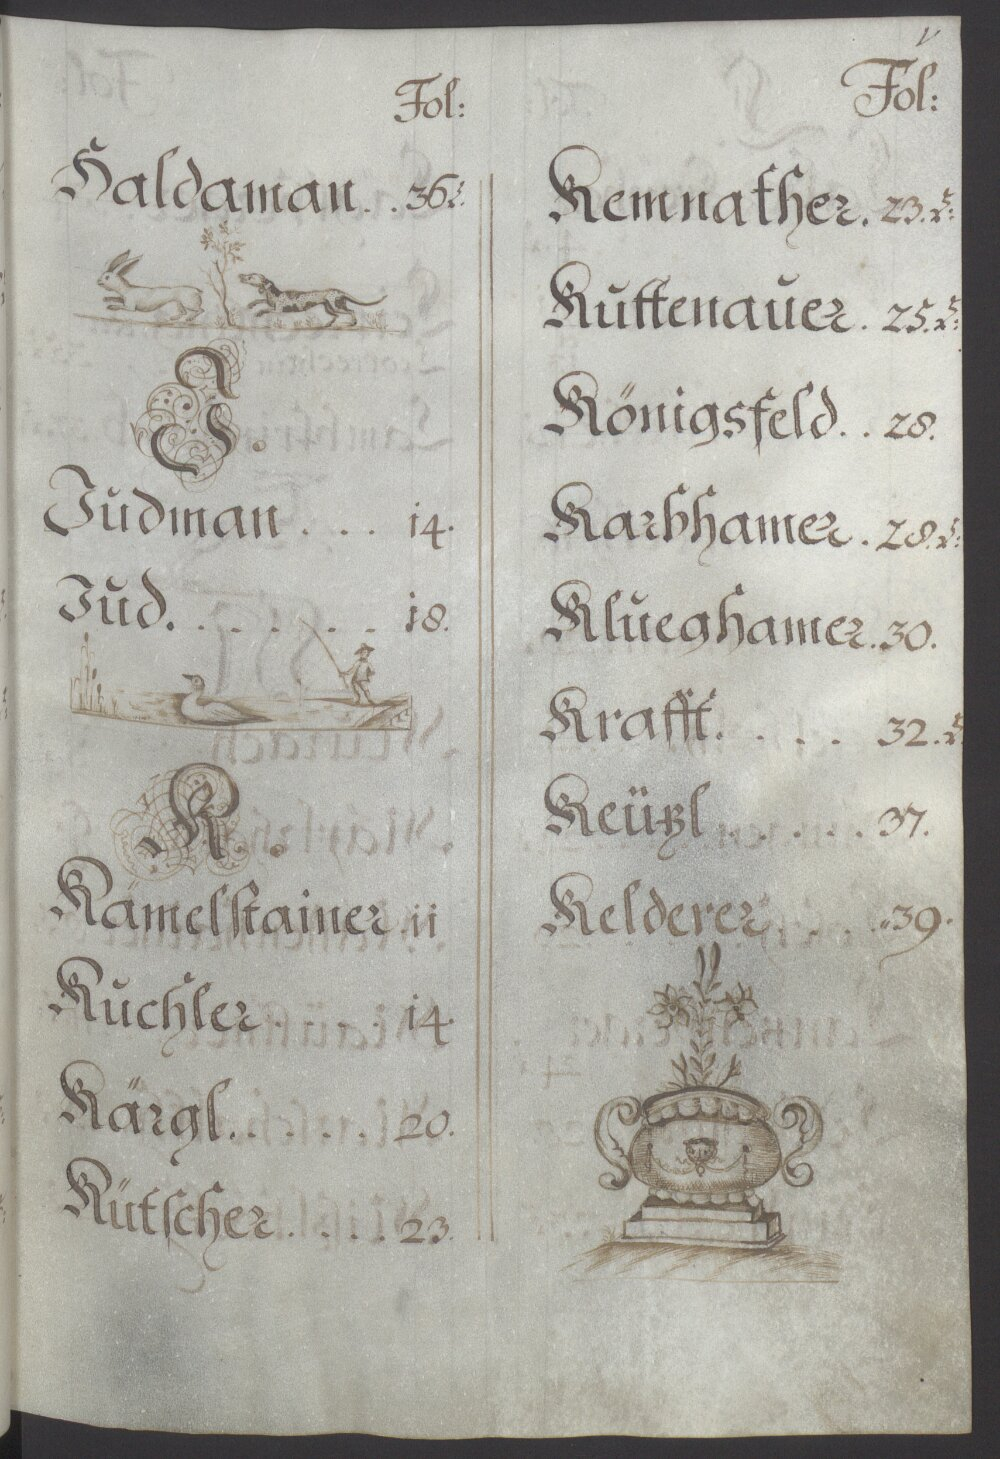 Fol:
Haldaman . . 36
I.
Judman . . . 14.
Jud. . . . . . . 18.
K.
Kämelstainer 11
Küchler . . . . 14.
Kärgl . . . . . 20.
Kütscher . . . . 23.
Fol:
Kemnather . 23.
Kuttenauer . 25.
Königsfeld . . 28.
Karbhamer . 28.
Klueghamer . 30.
Krafft . . . . 32.
Keützl . . . . . 37.
Kelderer . . . . 39.